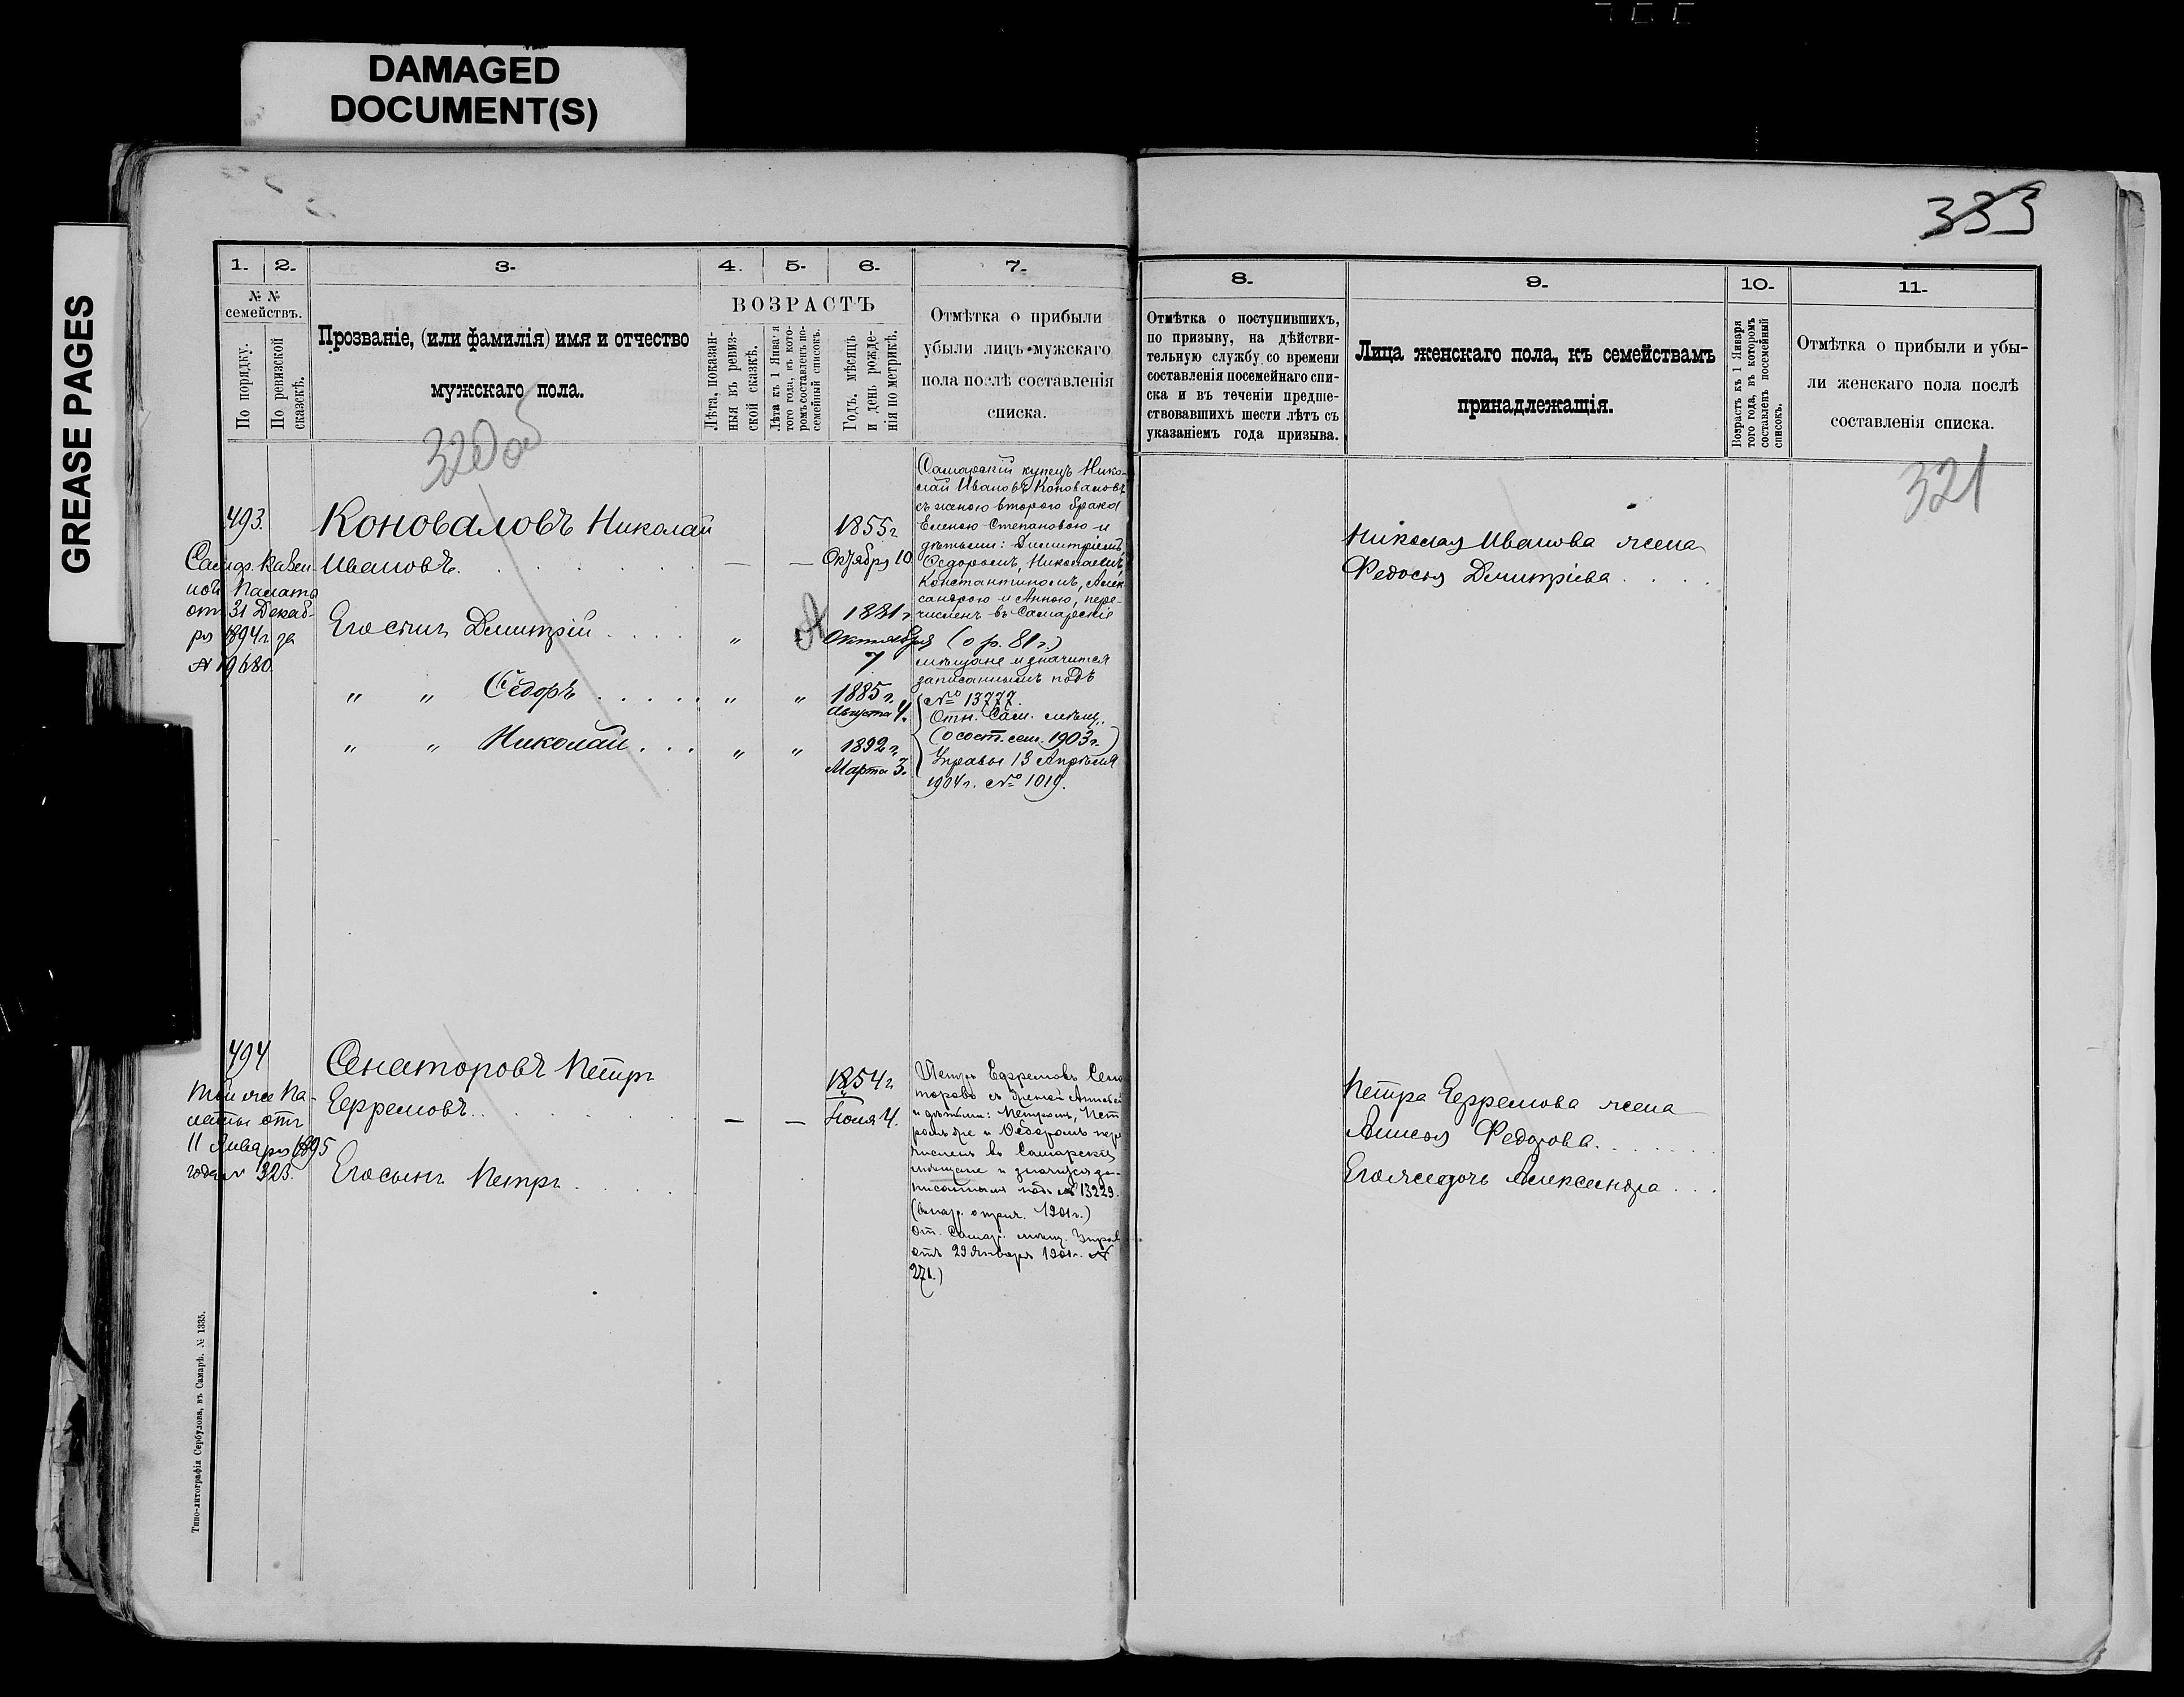 DAMAGED
DOCUMENT(S)
GREASE PAGES
333
1.
2.
3.
4.
5.
6.
7.
№ №
семействъ.
По порядку.
По ревизской
сказкѣ.
Прозваніе, (или фамилія) имя и отчество
мужскаго пола.
ВОЗРАСТЪ
Лѣта, показан-
ныя въ ревиз-
ской сказкѣ.
Лѣта къ 1 Января
того года, въ кото-
ромъ составленъ по-
семейный списокъ.
Годъ, мѣсяцъ
и день рожде-
нія по метрикѣ.
Отмѣтка о прибыли
убыли лицъ мужскаго
пола послѣ составленія
списка.
320 об
493.
Самар. Казен-
ной Палаты
отъ 31 Декаб-
ря 1894 г. за
№ 19680.
Коноваловъ Николай
Ивановъ.
— —
1855 г.
Октября 10.
Его сынъ Дмитрій
"
1881 г.
Октября
7
" " Ѳедоръ
" "
1885 г.
Августа 4.
" " Николай
" "
1892 г.
Марта 3.
Самарскій купецъ Нико-
лай Ивановъ Коноваловъ
съ женою второго брака
Еленою Степановою и
дѣтьми: Димитріемъ,
Ѳедоромъ, Николаемъ,
Константиномъ, Алек-
сандрою и Анною, пере-
численъ въ Самарскіе
(о р. 81 г.)
мѣщане и значится
записаннымъ подъ
№ 13777.
Отн. Сам. мѣщ.
(о сост. сем. 1903 г.)
Управы 13 Апрѣля
1904 г. № 1019.
494
Той же Па-
латы отъ
11 Января 1895
года № 323.
Сенаторовъ Петръ
Ефремовъ.
— —
1854 г.
Іюля 4.
Его сынъ Петръ
Петръ Ефремовъ Сена
торовъ съ женой Анисьей
и дѣтьми: Петромъ, Пет
ромъ же и Ѳедоромъ пере
численъ въ Самарскіе
мѣщане и значится за-
писаннымъ подъ № 13229.
1901 г.)
От. Самар. мѣщ. Управ
отъ 29 Января 1901 г. №
271.)
Типо-литографія Сербулова, въ Самарѣ. № 1335.
8.
9.
10.
11.
Отмѣтка о поступившихъ,
по призыву, на дѣйстви-
тельную службу со времени
составленія посемейнаго спи-
ска и въ теченіи предше-
ствовавшихъ шести лѣтъ съ
указаніемъ года призыва.
Лица женскаго пола, къ семействамъ
принадлежащія.
Возрастъ къ 1 Января
того года, въ которомъ
составленъ посемейный
списокъ.
Отмѣтка о прибыли и убы-
ли женскаго пола послѣ
составленія списка.
321
Николая Иванова жена
Федосья Дмитріева
Петра Ефремова жена
Анисья Федорова.
Его же дочь Александра